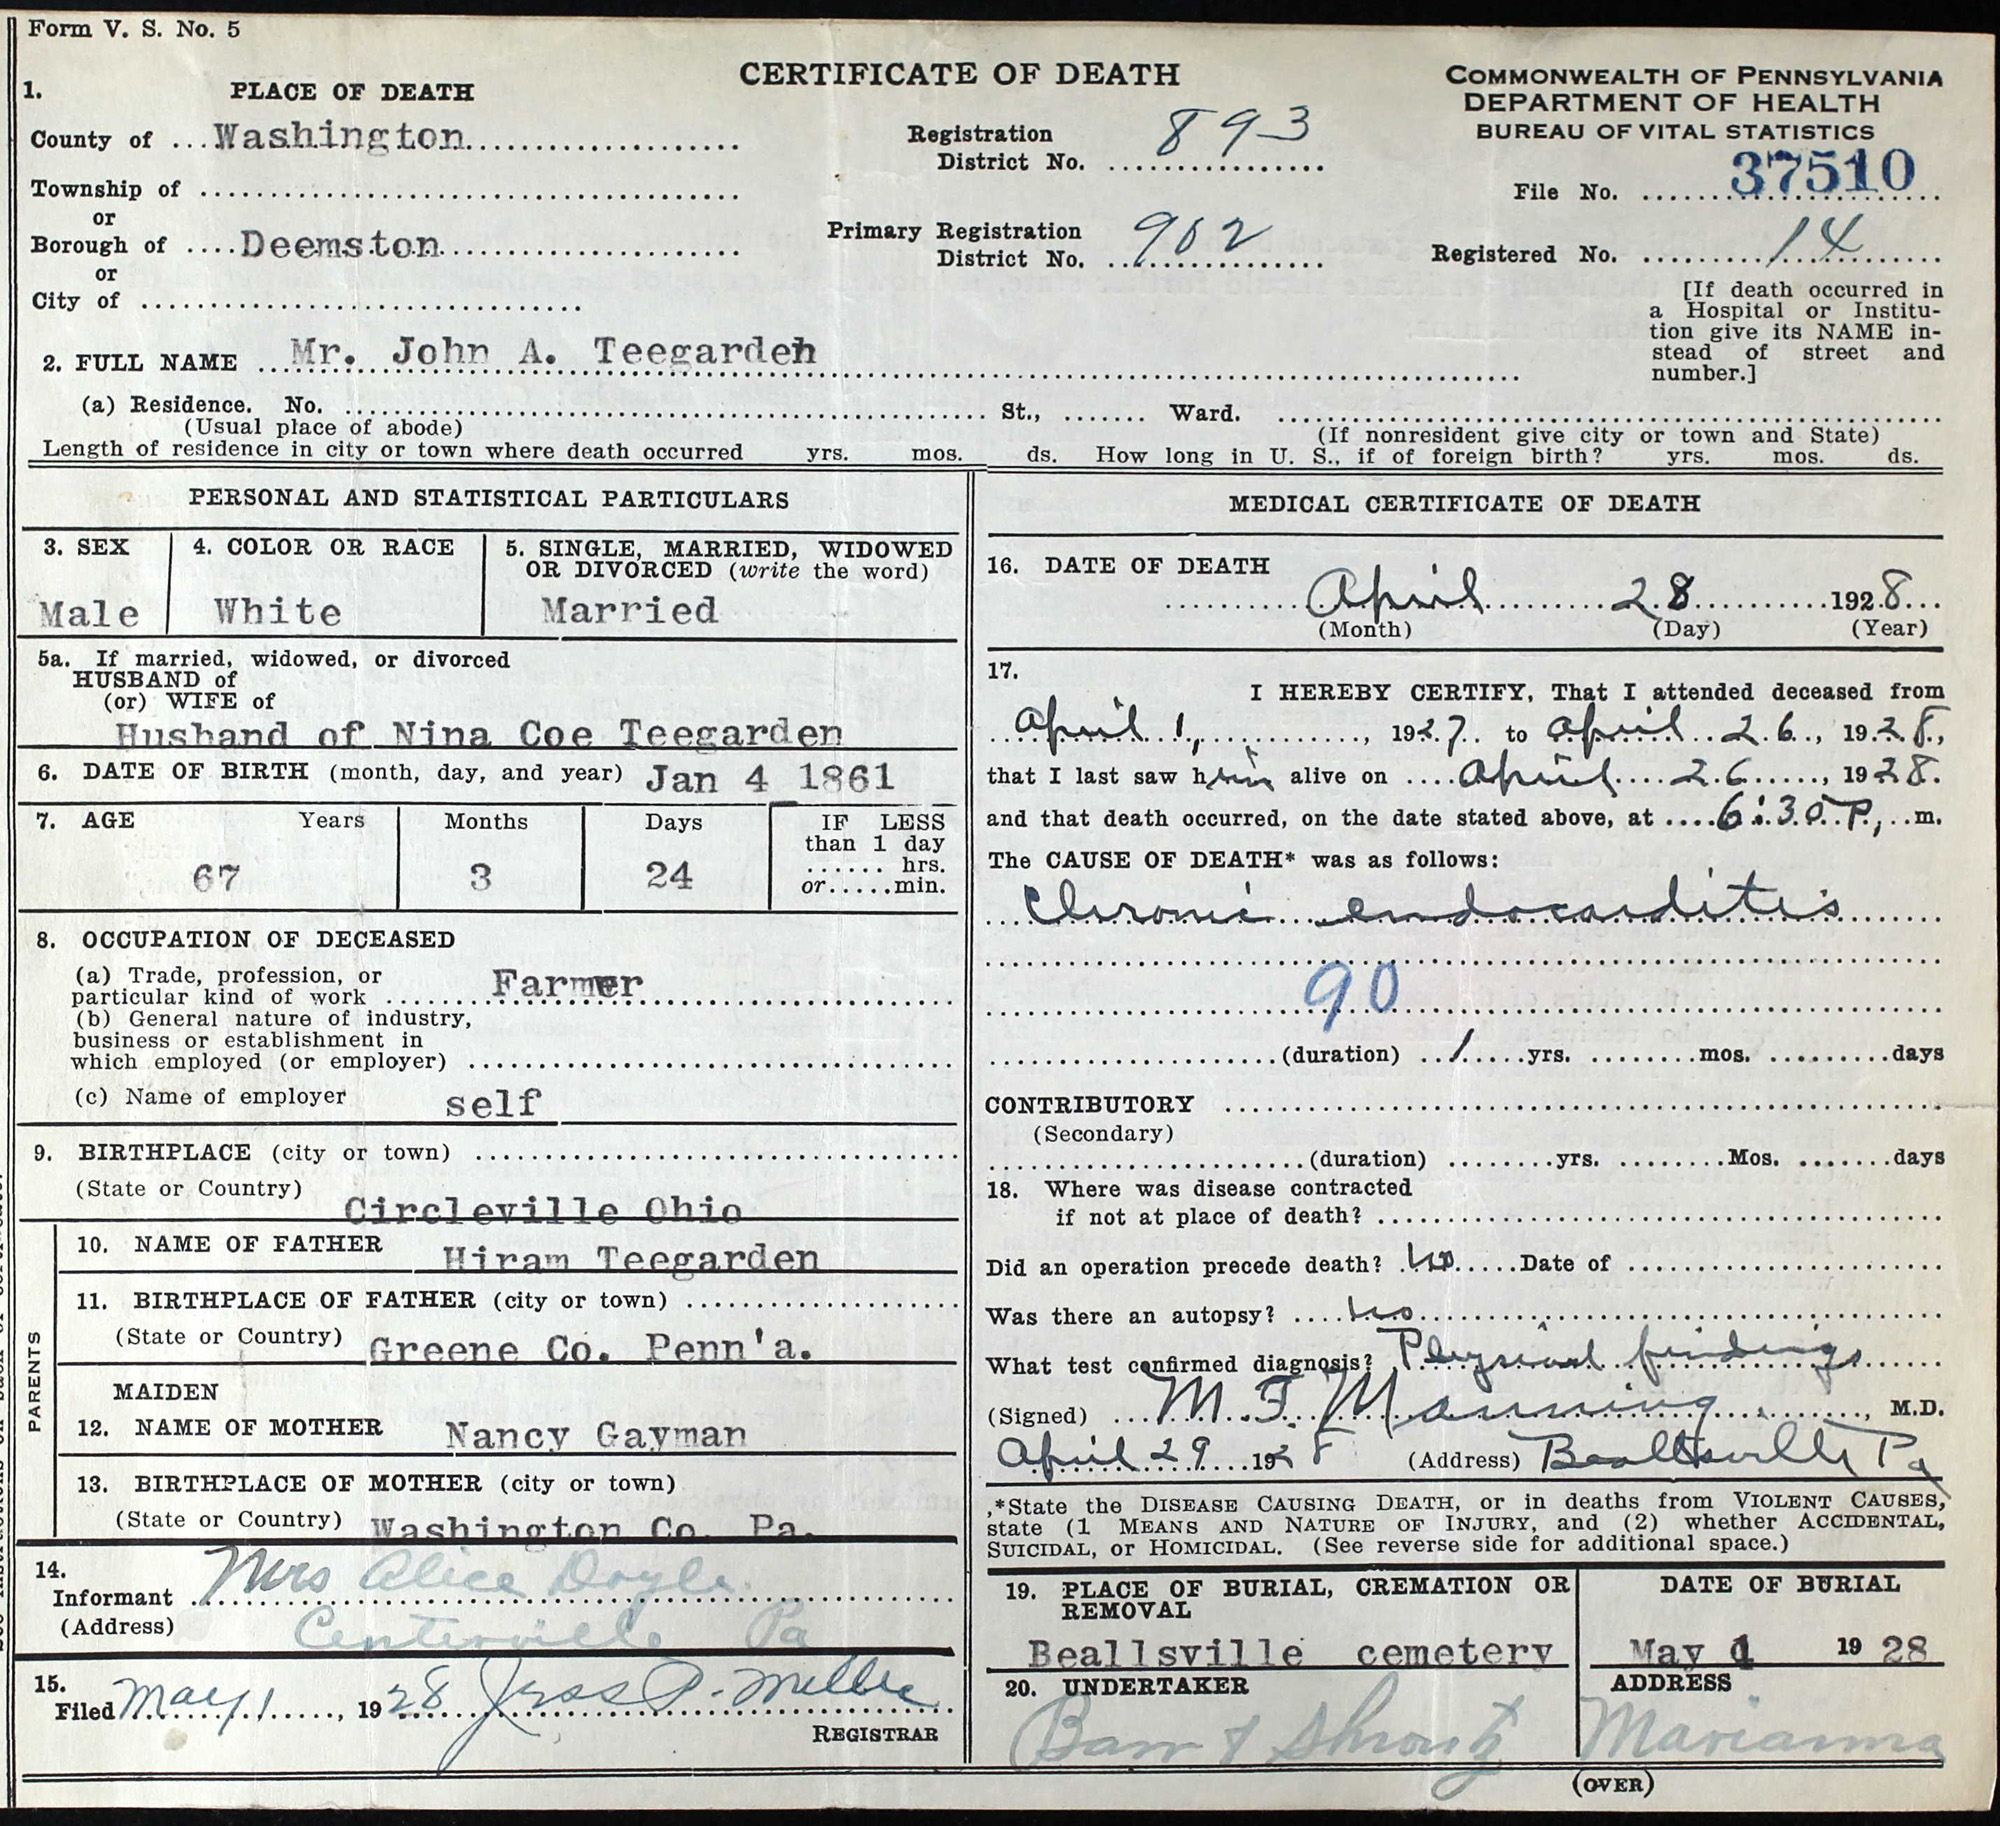 Form V. S. No. 5
CERTIFICATE OF DEATH
COMMONWEALTH OF PENNSYLVANIA
DEPARTMENT OF HEALTH
BUREAU OF VITAL STATISTICS
1. PLACE OF DEATH
County of Washington
Registration District No. 893
File No. 37510
Township of
or
Borough of Deemston
Primary Registration District No. 902
Registered No. 14
or
City of
[If death occurred in
a Hospital or Institu-
tion give its NAME in-
stead of street and
number.]
2. FULL NAME Mr. John A. Teegarden
(a) Residence. No. St., Ward.
(Usual place of abode) (If nonresident give city or town and State)
Length of residence in city or town where death occurred yrs. mos. ds. How long in U. S., if of foreign birth? yrs. mos. ds.
PERSONAL AND STATISTICAL PARTICULARS
3. SEX
Male
4. COLOR OR RACE
White
5. SINGLE, MARRIED, WIDOWED
OR DIVORCED (write the word)
Married
5a. If married, widowed, or divorced
HUSBAND of
(or) WIFE of
Husband of Nina Coe Teegarden
6. DATE OF BIRTH (month, day, and year) Jan 4 1861
7. AGE Years Months Days IF LESS
than 1 day
hrs.
or min.
67 3 24
8. OCCUPATION OF DECEASED
(a) Trade, profession, or
particular kind of work Farmer
(b) General nature of industry,
business or establishment in
which employed (or employer)
(c) Name of employer self
9. BIRTHPLACE (city or town)
(State or Country)
Circleville Ohio
PARENTS
10. NAME OF FATHER Hiram Teegarden
11. BIRTHPLACE OF FATHER (city or town)
(State or Country) Greene Co. Penn'a.
MAIDEN
12. NAME OF MOTHER Nancy Gayman
13. BIRTHPLACE OF MOTHER (city or town)
(State or Country) Washington Co. Pa.
14.
Informant Mrs Alice Doyle.
(Address) Centerville Pa
15.
Filed May 1, 1928 Jess P. Miller
REGISTRAR
MEDICAL CERTIFICATE OF DEATH
16. DATE OF DEATH
April 28 1928
(Month) (Day) (Year)
17.
I HEREBY CERTIFY, That I attended deceased from
April 1, , 1927 to April 26, 1928,
that I last saw him alive on April 26, 1928.
and that death occurred, on the date stated above, at 6:30 P, m.
The CAUSE OF DEATH* was as follows:
Chronic endocarditis
90
(duration) 1 yrs. mos. days
CONTRIBUTORY
(Secondary)
(duration) yrs. Mos. days
18. Where was disease contracted
if not at place of death?
Did an operation precede death? no Date of
Was there an autopsy? no
What test confirmed diagnosis? Physical findings
(Signed) M. F. Manning, M.D.
April 29 1928 (Address) Beallsville Pa
*State the DISEASE CAUSING DEATH, or in deaths from VIOLENT CAUSES,
state (1 MEANS AND NATURE OF INJURY, and (2) whether ACCIDENTAL,
SUICIDAL, or HOMICIDAL. (See reverse side for additional space.)
19. PLACE OF BURIAL, CREMATION OR
REMOVAL
Beallsville cemetery
DATE OF BURIAL
May 1 1928
20. UNDERTAKER
Barr & Shrontz
ADDRESS
Marianna
(OVER)